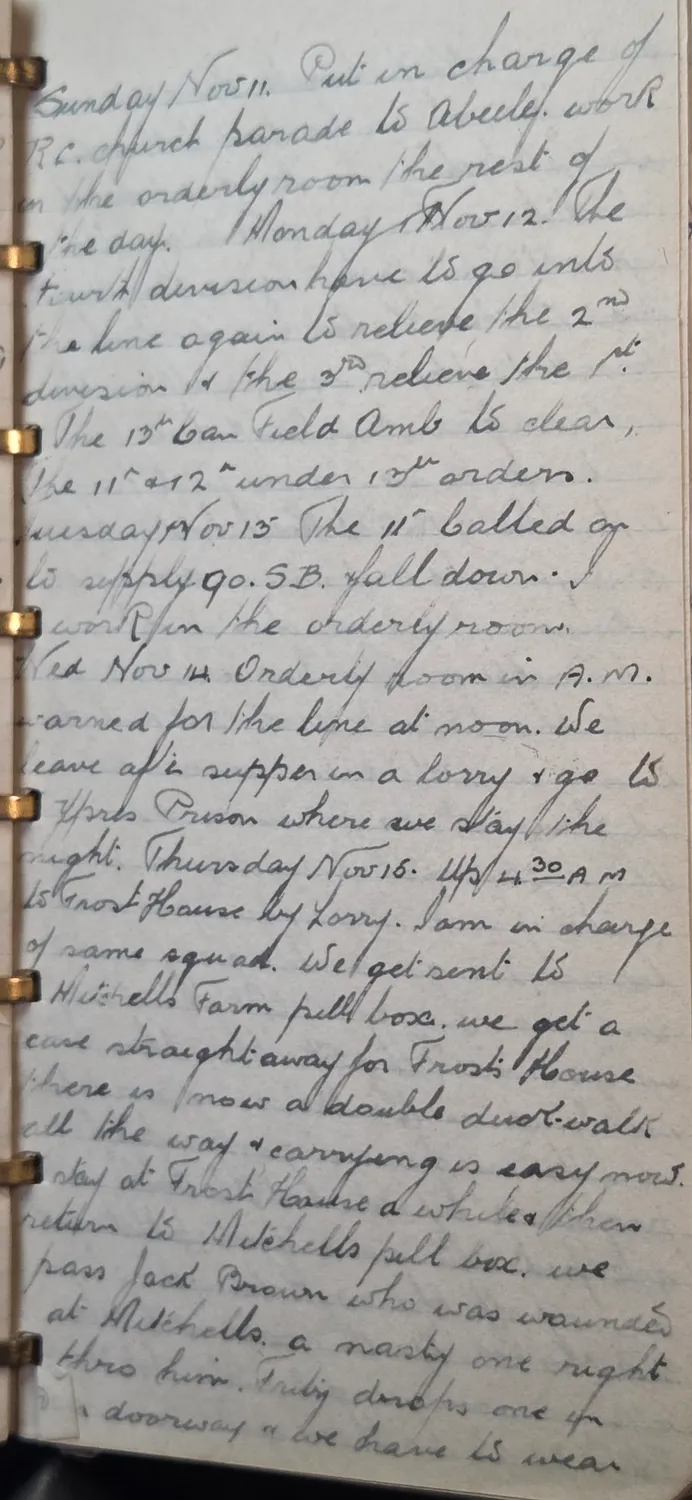 Sunday Nov 11. Put in charge of
R.C. church parade to Abeele. work
in the orderly room the rest of
the day. Monday Nov 12. The
fourth division have to go into
the line again to relieve the 2nd
division & the 3rd relieve the 1st.
The 13th Can Field Amb to clear,
the 11th & 12th under 13th orders.
Tuesday Nov 13 The 11th called on
to supply 90. S.B. fall down. I
work in the orderly room.
Wed Nov 14. Orderly room in A.M.
warned for the line at noon. We
leave aft supper in a lorry & go to
Ypres Prison where we stay the
night. Thursday Nov 15. Up 4.30 A M
to Frost House by Lorry. I am in charge
of same squad. We get sent to
Mitchells Farm pill box. we get a
case straight away for Frost House
there is now a double duck-walk
all the way & carrying is easy now.
stay at Frost House a while & then
return to Mitchells pill box. we
pass Jack Brown who was wounded
at Mitchells. a nasty one right
thro him. Fritz drops one in
doorway & we have to wear